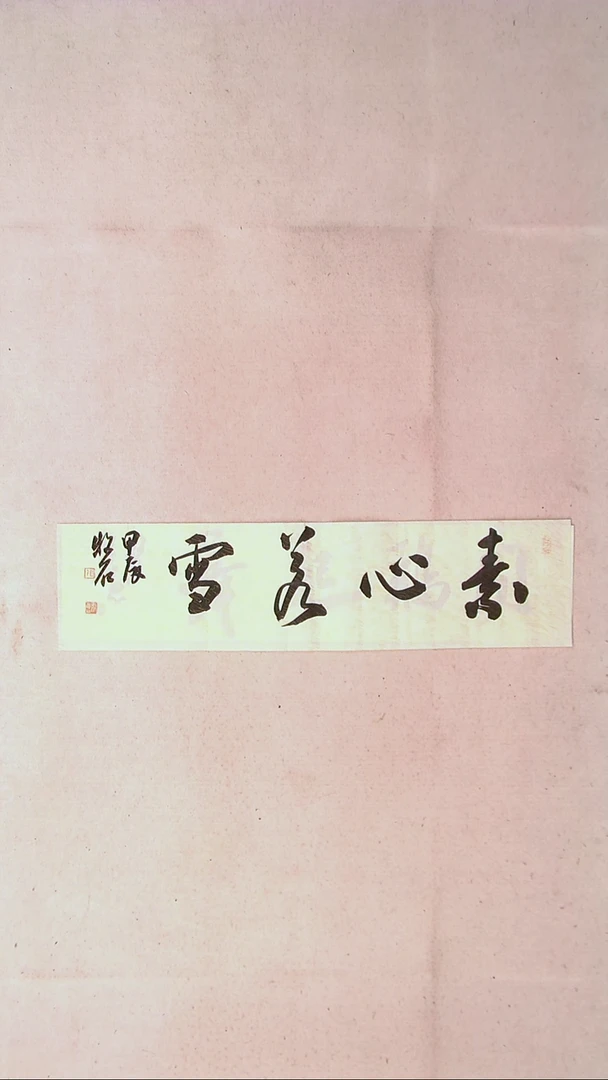 素心若雪
甲辰
牧石